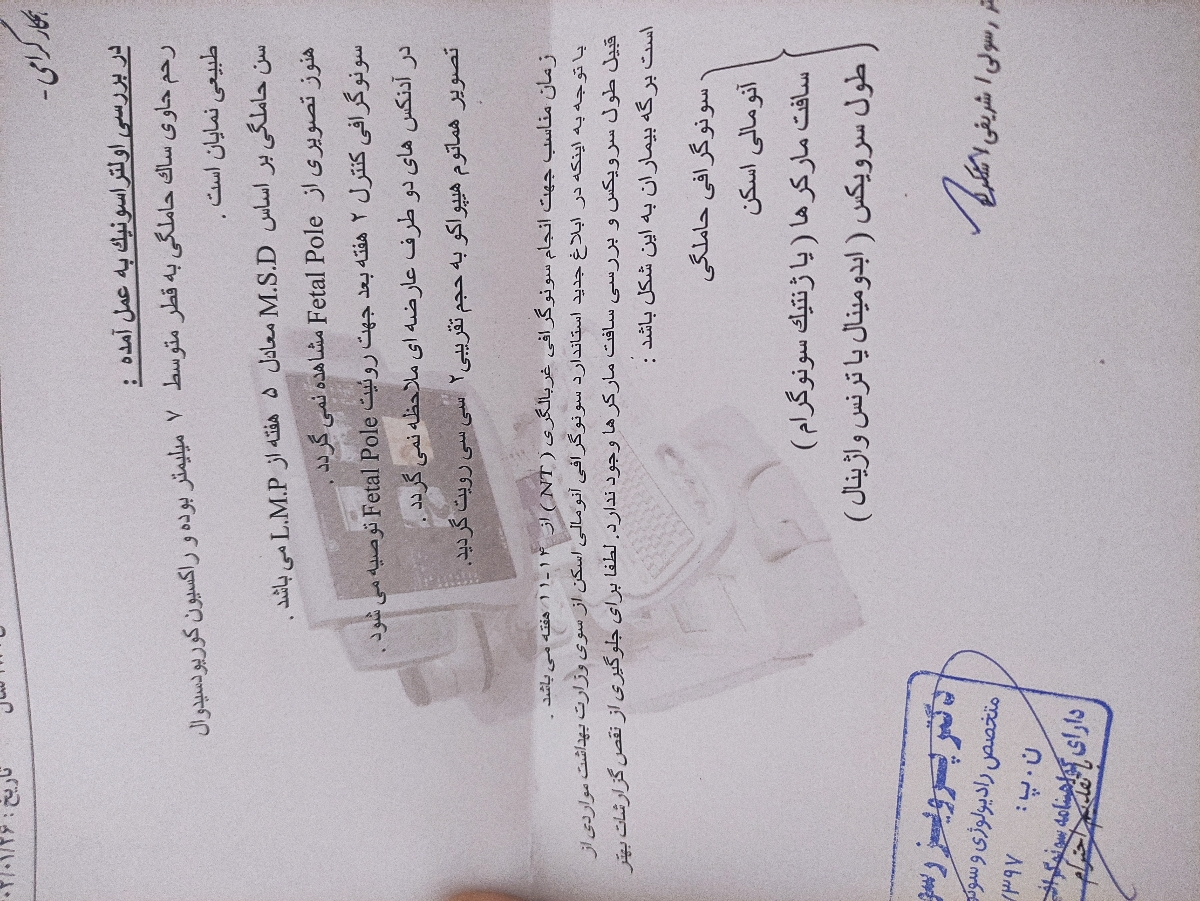 تاریخ : ۰۲/۰۱/۲۶
همکار گرامی -
در بررسی اولتراسونیک به عمل آمده :
رحم حاوی ساک حاملگی به قطر متوسط ۷ میلیمتر بوده و راکسیون کوریودسیدوال
طبیعی نمایان است .
سن حاملگی بر اساس M.S.D معادل ۵ هفته از L.M.P می باشد .
هنوز تصویری از Fetal Pole مشاهده نمی گردد .
سونوگرافی کنترل ۲ هفته بعد جهت روئیت Fetal Pole توصیه می شود .
در آدنکس های دو طرف عارضه ای ملاحظه نمی گردد .
تصویر هماتوم هیپواکو به حجم تقریبی ۲ سی سی رویت گردید.
زمان مناسب جهت انجام سونوگرافی غربالگری ( NT ) از ۱۴-۱۱ هفته می باشد .
با توجه به اینکه در ابلاغ جدید استاندارد سونوگرافی آنومالی اسکن از سوی وزارت بهداشت مواردی از
قبیل طول سرویکس و بررسی سافت مارکرها وجود ندارد. لطفا برای جلوگیری از نقص گزارشات بهتر
است برگه بیماران به این شکل باشد :
سونوگرافی حاملگی
آنومالی اسکن
سافت مارکر ها ( یا ژنتیک سونوگرام )
طول سرویکس ( ابدومینال یا ترنس واژینال )
رسولی / شریفی /
دکتر پرویز
متخصص رادیولوژی و
ن . پ :
دارای گواهینامه
با تقدیم احترام